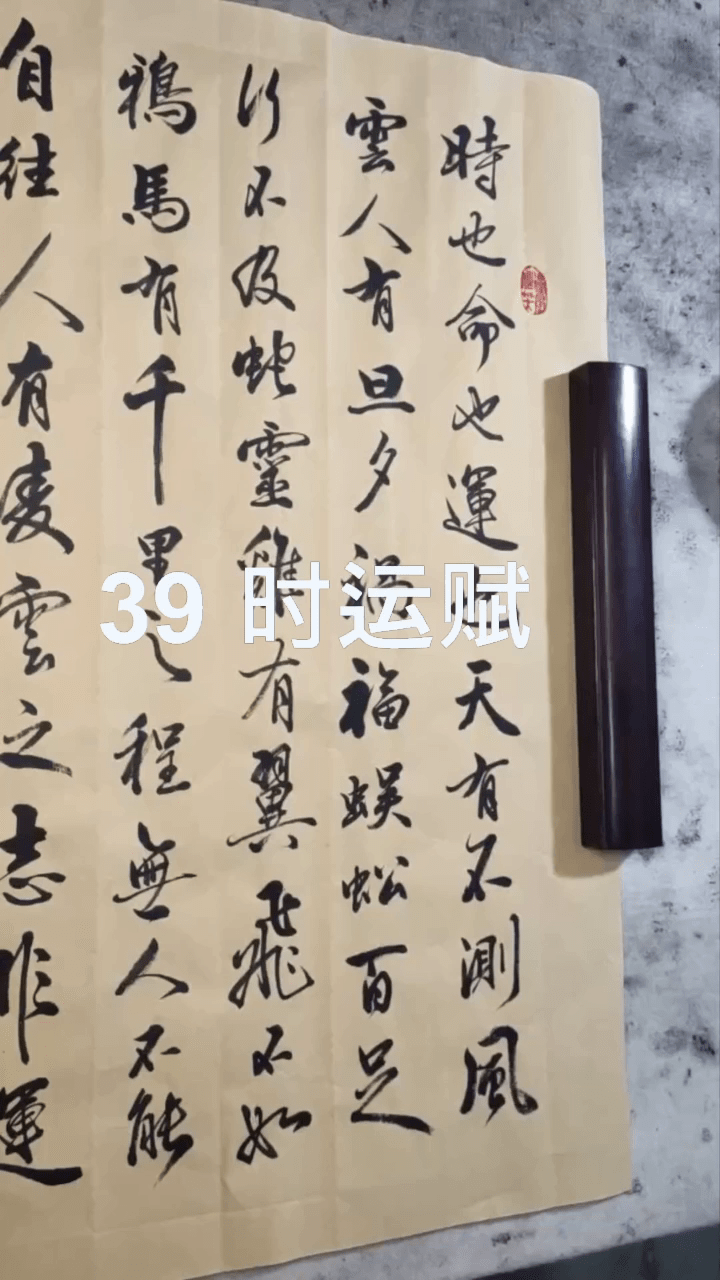 時也命也運也天有不測風
雲人有旦夕禍福蜈蚣百足
行不及蛇靈雞有翼飛不如
鴉馬有千里之程無人不能
自往人有凌雲之志非運
39 时运赋